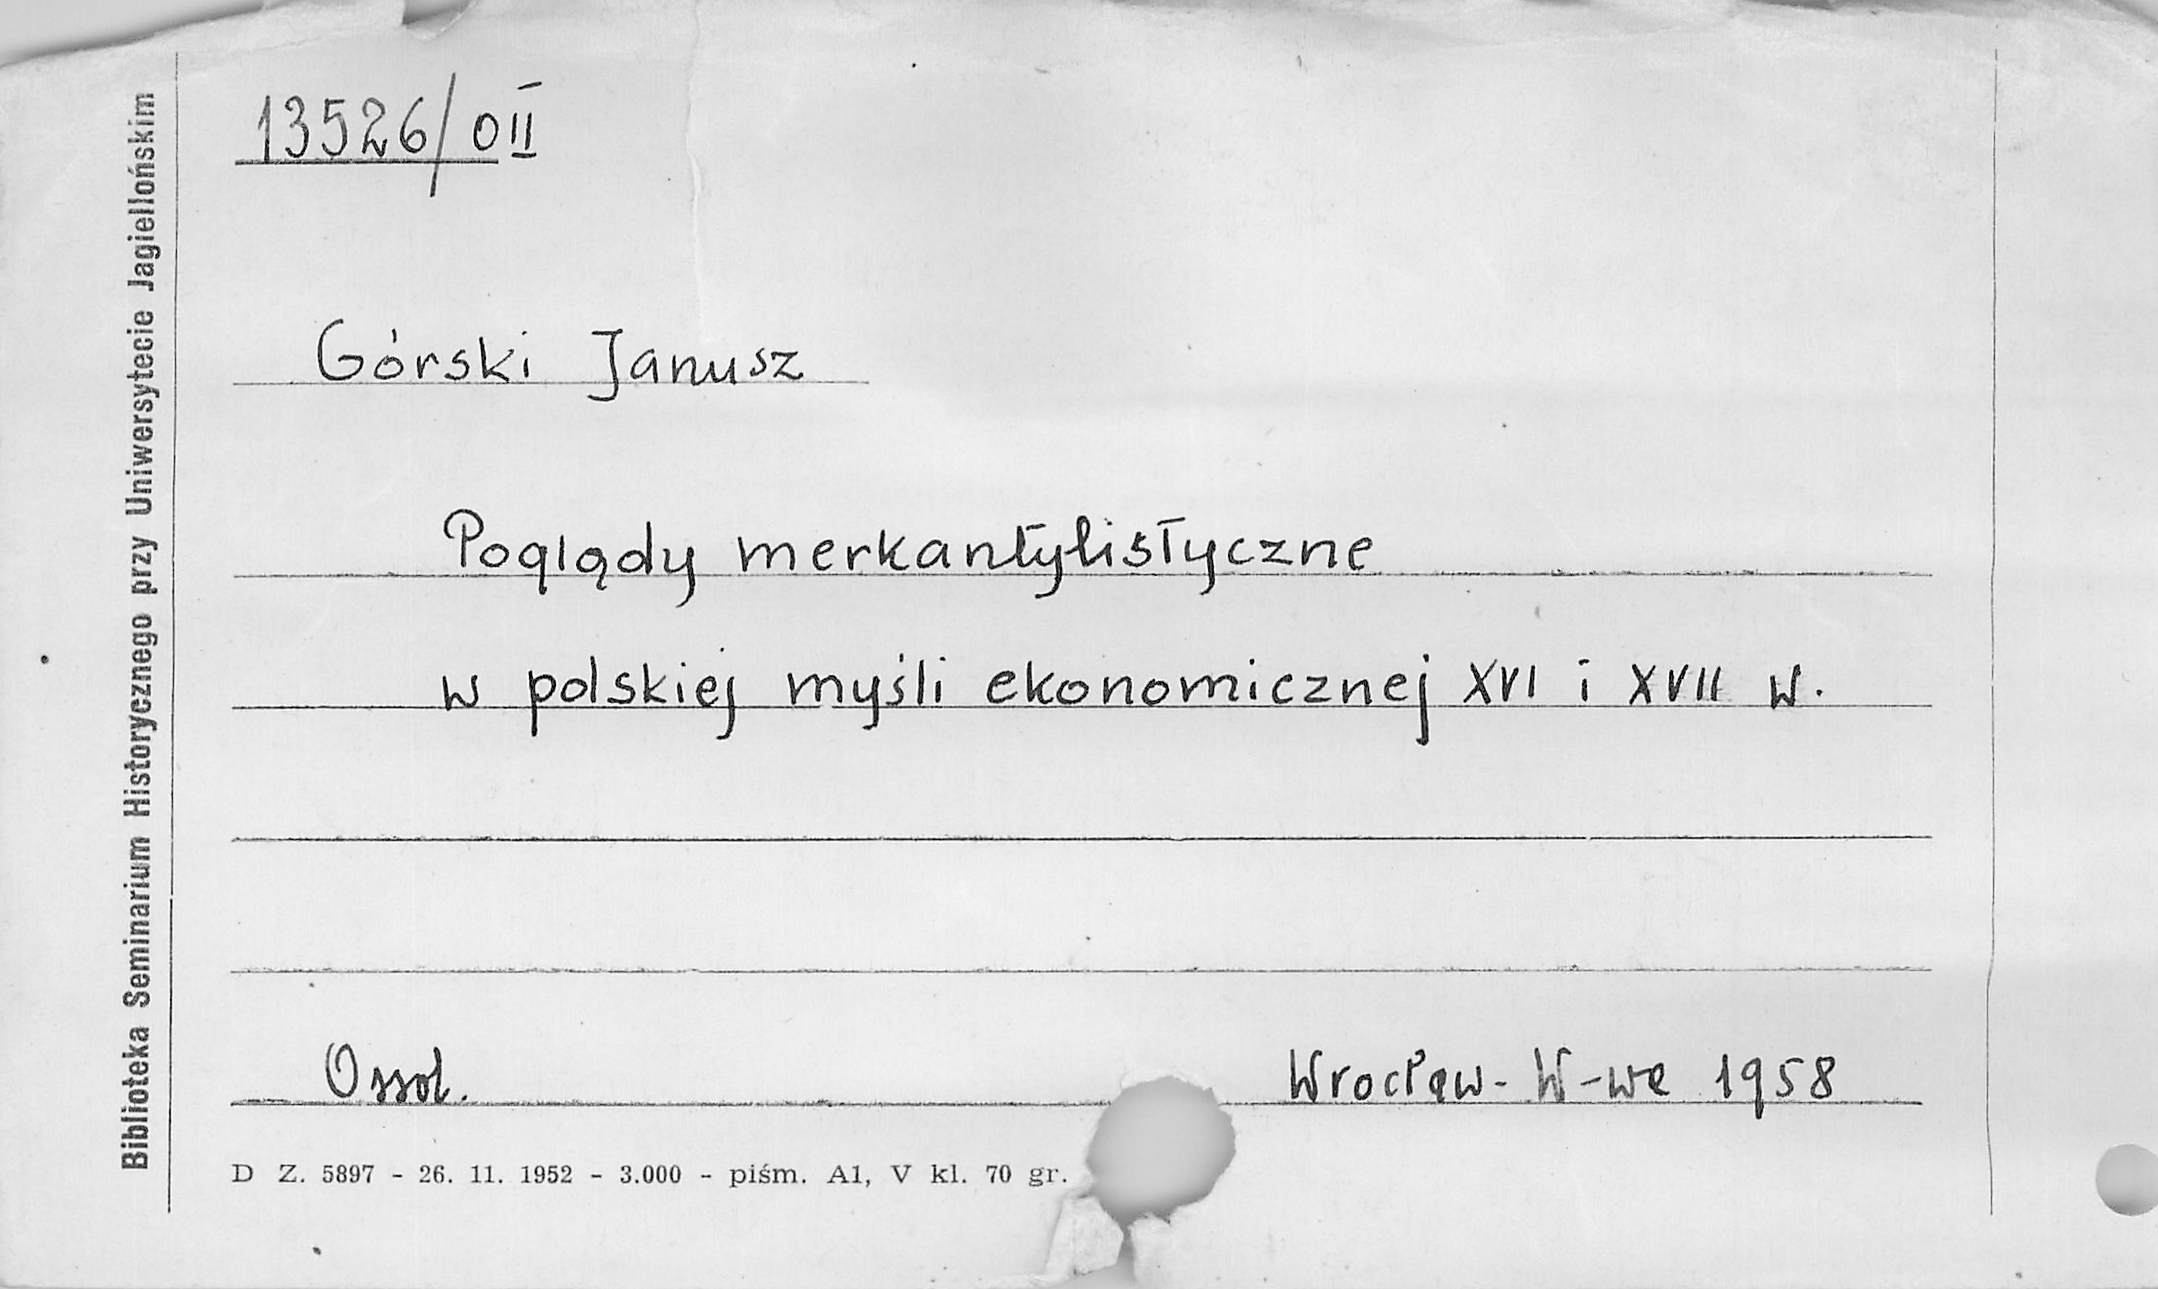 13526/0II
Biblioteka Seminarium Historycznego przy Uniwersytecie Jagiellońskim
Górski Janusz
Poglądy merkantylistyczne
w polskiej myśli ekonomicznej XVI i XVII w.
Ossol.
Wrocław - W-wa 1958
D Z. 5897 - 26. 11. 1952 - 3.000 - piśm. A1, V kl. 70 gr.